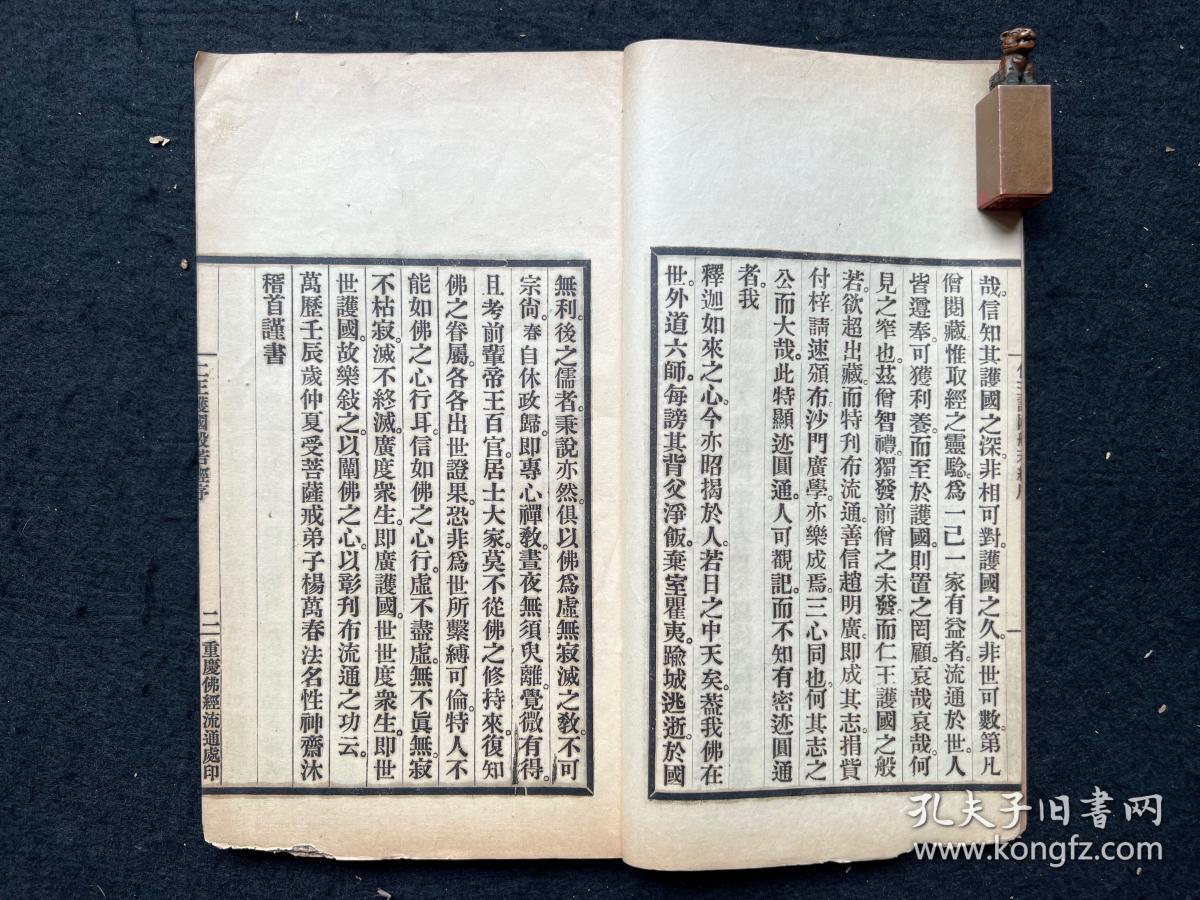 哉。信知其護國之深。非相可對。護國之久。非世可數。第凡
僧閱藏。惟取經之靈驗。爲一己一家有益者。流通於世。人
皆遵奉。可獲利養。而至於護國。則置之罔顧。哀哉哀哉。何
見之窄也。茲僧智禮。獨發前僧之未發。而仁王護國之般
若。欲超出藏。而特刊布流通。善信趙明廣。即成其志。捐貲
付梓。請速頒布。沙門廣學。亦樂成焉。三心同也。何其志之
公而大哉。此特顯迹圓通。人可觀記。而不知有密迹圓通
者。我
釋迦如來之心。今亦昭揭於人。若日之中天矣。葢我佛在
世。外道六師。每謗其背父淨飯。棄室瞿夷。踰城逃逝。於國
無利。後之儒者。秉說亦然。俱以佛爲虛無寂滅之教。不可
宗尙。春自休政歸。即專心禪教。晝夜無須臾離。覺微有得。
且考前輩帝王百官。居士大家。莫不從佛之修持來。復知
佛之眷屬。各各出世證果。恐非爲世所繫縛可倫。特人不
能如佛之心行耳。信如佛之心行。虛不盡虛。無不眞無。寂
不枯寂。滅不終滅。廣度衆生。即廣護國。世世度衆生。即世
世護國。故樂敍之。以闡佛之心。以彰刋布流通之功云。
萬歷壬辰歲仲夏受菩薩戒弟子楊萬春法名性神齋沐
稽首謹書
仁王護國般若經序
二
重慶佛經流通處印
孔夫子旧书网
www.kongfz.com